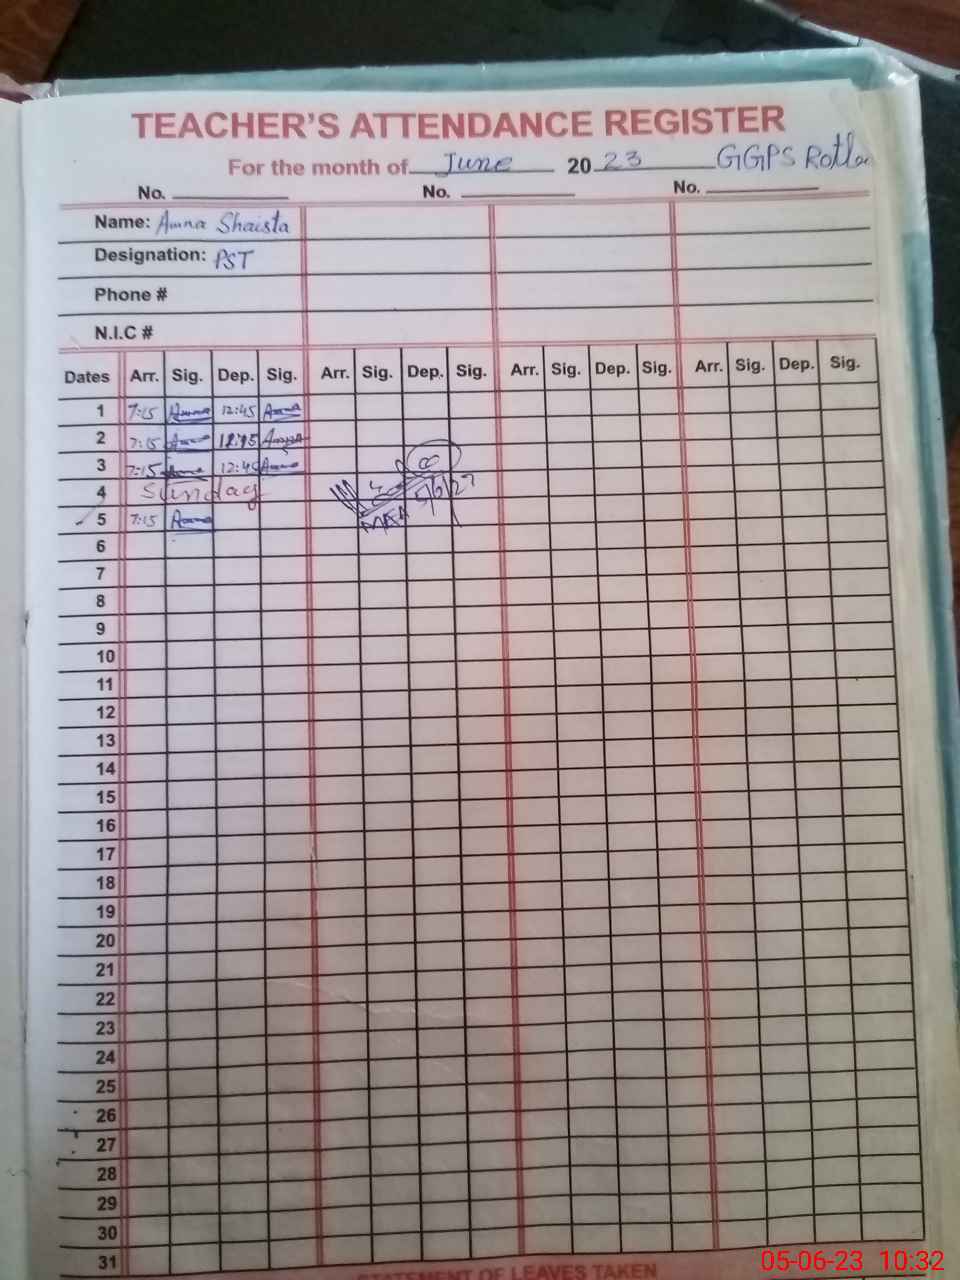 TEACHER'S ATTENDANCE REGISTER
For the month of June 2023 GGPS
No. No. No.
Name: Amna Shaista
Designation: PST
Phone #
N.I.C #
Dates Arr. Sig. Dep. Sig. Arr. Sig. Dep. Sig. Arr. Sig. Dep. Sig. Arr. Sig. Dep. Sig.
1 7:15 Amna 12:45 Amna
2 7:15 Amna Amna
3 7:15 Amna 12:45 Amna
4 Sunday
5 7:15 Amna
MEA 5/6/23
6
7
8
9
10
11
12
13
14
15
16
17
18
19
20
21
22
23
24
25
26
27
28
29
30
31
STATEMENT OF LEAVES TAKEN
05-06-23 10:32